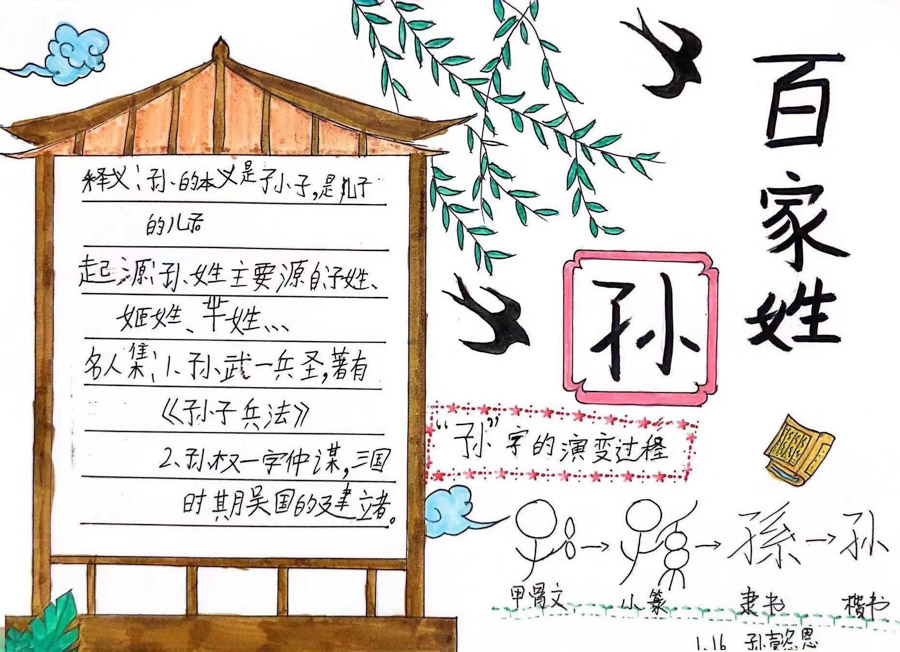 释义:孙的本义是子小子,是儿子
的儿子
起源:孙姓主要源自子姓、
姬姓、芈姓、、、
名人集:1、孙武一兵圣,著有
《孙子兵法》
2、孙权一字仲谋,三国
时其月吴国的建立者。
百家姓
孙
“孙”字的演变过程
孫 → 孙
甲骨文 小篆 隶书 楷书
1.16 孙懿恩